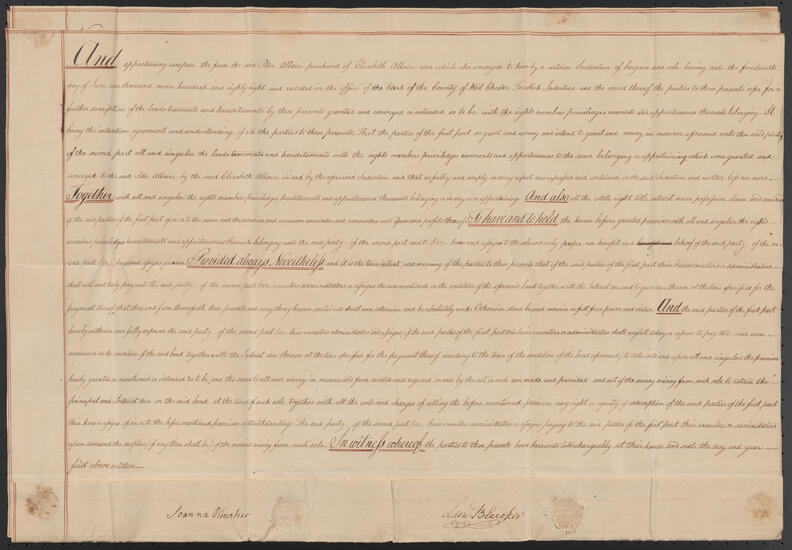 And appertaining compose the farm the said Peter Allaire purchased of Elizabeth Allaire and which she conveyed to him by a certain Indenture of bargain and sale bearing date the fourteenth
day of June one thousand seven hundred and eighty eight and recorded in the office of the Clerk of the County of West Chester To which Indenture and the record thereof the parties to these presents refer for a
further description of the lands tenements and hereditaments by these presents granted and conveyed or intended so to be with the rights members priviledges easements and appurtenances thereunto belonging. It
being the intention agreement and understanding of all the parties to these presents That the parties of the first part do grant and convey and intend to grant and convey in manner aforesaid unto the said party
of the second part all and singular the lands tenements and hereditaments with the rights members priviledges easements and appurtenances to the same belonging or appertaining which was granted and
conveyed to the said Peter Allaire by the said Elizabeth Allaire in and by the aforesaid Indenture and that as fully and amply in every respect as is expressed and contained in the said Indenture and neither less nor more
Together with all and singular the rights members priviledges hereditaments and appurtenances thereunto belonging or in any wise appertaining. And also all the estate right title interest use possession claim and demand
of the said parties of the first part of in or to the same and the reversion and reversions remainder and remainders rents issues and profits thereof To have and to hold the herein before granted premises with all and singular the rights
members priviledges hereditaments and appurtenances thereunto belonging unto the said party of the second part and to her heirs and assigns to the sole and only proper use benefit and behoof of the said party of the se
cond part her heirs and assigns forever Provided always Nevertheless and it is the true intent and meaning of the parties to these presents that if the said parties of the first part their heirs executors or administrators
shall well and truly pay unto the said party of the second part her executors administrators or assigns the sum mentioned in the condition of the aforesaid bond together with the Interest due and to grow due thereon at the time specified for the
payment thereof that then and from thenceforth these presents and every thing herein contained shall cease determine and be absolutely void Otherwise stand be and remain in full force power and virtue. And the said parties of the first part
hereby authorise and fully empower the said party of the second part her heirs executors administrators and assigns if the said parties of the first part their heirs executors or administrators shall neglect delay or refuse to pay the said sum
mentioned in the condition of the said bond together with the Interest due thereon at the time specified for the payment thereof according to the tenor of the condition of the bond aforesaid to enter into and upon all and singular the premises
hereby granted or mentioned or intended so to be, and the same to sell and convey in manner and form directed and required in and by the act in such case made and provided and out of the money arising from such sale to retain the
principal and Interest due on the said bond at the time of such sale, together with all the costs and charges of selling the before mentioned premises, any right or equity of redemption of the said parties of the first part
their heirs or assigns of in or to the before mentioned premises notwithstanding The said party of the second part her heirs executors administrators or assigns paying to the said parties of the first part their executors or administrators
upon demand the surplus, if any there shall be, of the monies arising from such sale. In witness whereof the parties to these presents have hereunto interchangeably set their hands and seals the day and year
first above written
Joanna Bleecker
Leon Bleecker